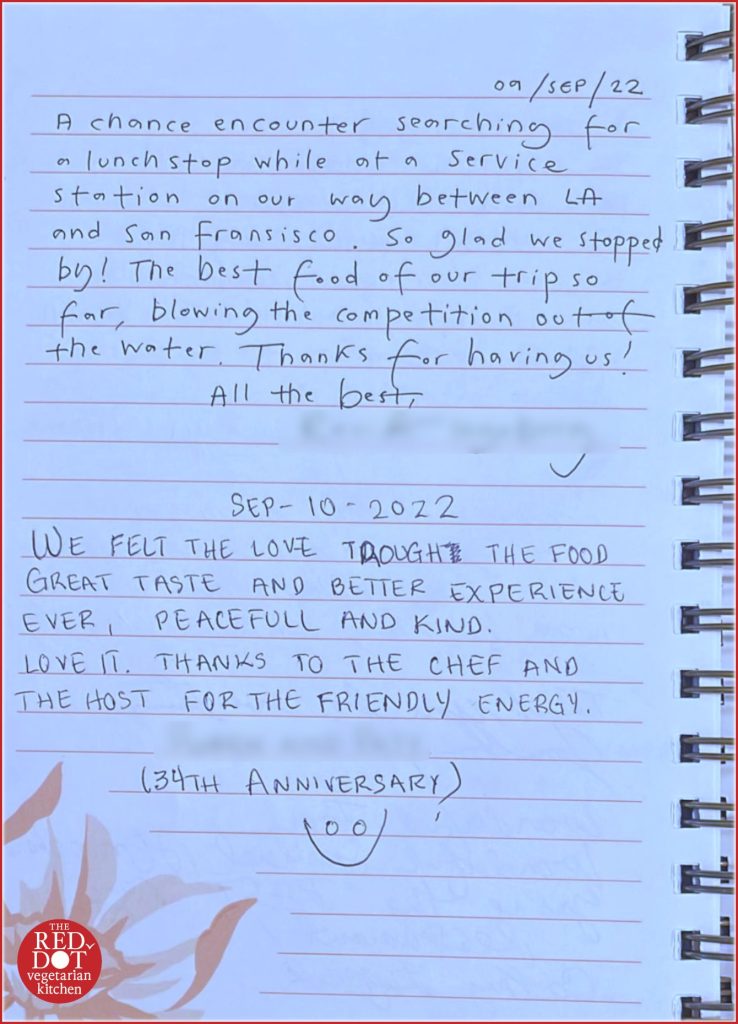 09/SEP/22
A chance encounter searching for
a lunch stop while at a service
station on our way between LA
and San Fransisco. So glad we stopped
by! The best food of our trip so
far, blowing the competition out of
the water. Thanks for having us!
All the best,
SEP-10-2022
WE FELT THE LOVE THE FOOD
GREAT TASTE AND BETTER EXPERIENCE
EVER, PEACEFULL AND KIND.
LOVE IT. THANKS TO THE CHEF AND
THE HOST FOR THE FRIENDLY ENERGY.
(34TH ANNIVERSARY)
THE
RED
DOT
vegetarian
kitchen